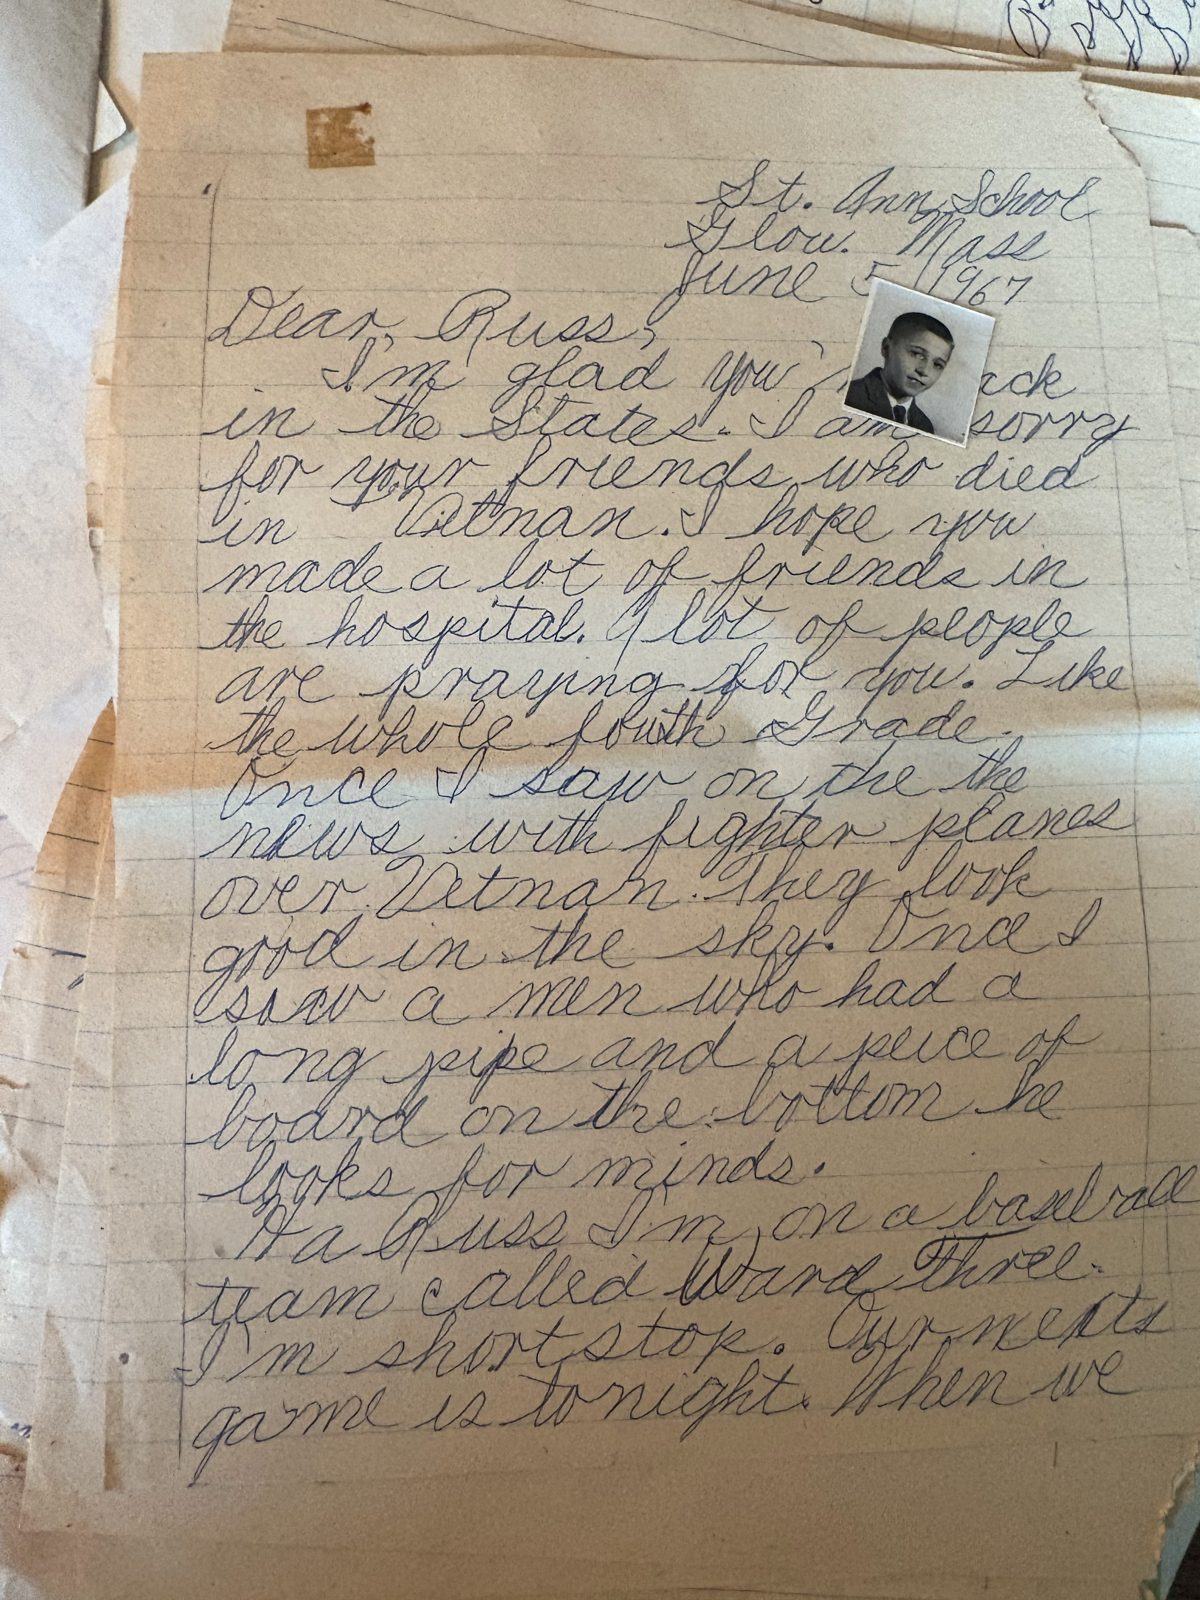 St. Ann School
Glou. Mass
June 5, 1967
Dear, Russ,
I'm glad you ack
in the States. I am sorry
for your friends who died
in Vetnan. I hope you
made a lot of friends in
the hospital. A lot of people
are praying for you. Like
the whole fouth Grade.
Once I saw on the the
news with fighter planes
over Vetnan. They look
good in the sky. Once I
saw a men who had a
long pipe and a peice of
board on the bottom he
looks for minds.
Ha Russ I'm on a baseball
team called Ward Three.
I'm short stop. Our nexts
game is tonight. When we